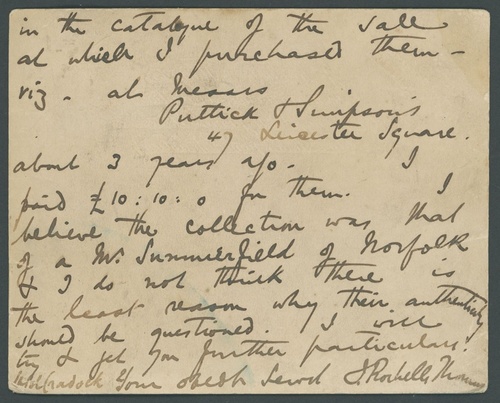 in the catalogue of the sale
at which I purchased them -
viz. at Messrs
Puttick & Simpson's
47 Leicester Square.
about 3 years ago. I
paid £10:10:0 for them. I
believe the collection was that
of a Mr. Summerfield of Norfolk
& I do not think there is
the least reason why their authenticity
should be questioned. I will
try & get you further particulars.
Cradock Your obedt Servt J. Rochelle Thomas